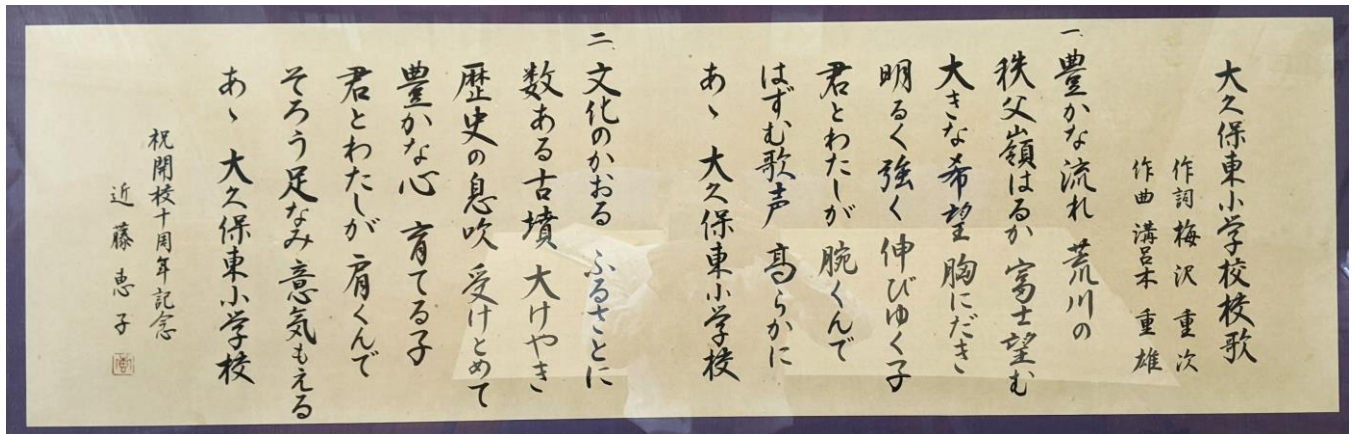 大久保東小学校校歌
作詞 梅沢 重次
作曲 溝呂木 重雄
一 豊かな流れ 荒川の
秩父嶺はるか 富士望む
大きな希望 胸にだき
明るく強く 伸びゆく子
君とわたしが 腕くんで
はずむ歌声 高らかに
あゝ 大久保東小学校
二 文化のかおる ふるさとに
数ある古墳 大けやき
歴史の息吹 受けとめて
豊かな心 育てる子
君とわたしが 肩くんで
そろう足なみ 意気もえる
あゝ 大久保東小学校
祝開校十周年記念
近藤恵子